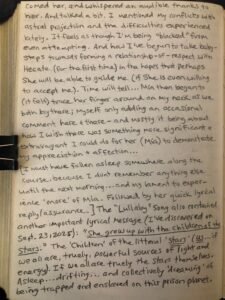 comed her, and whispered an audible thanks to
her. And talked a bit. I mentioned my conflicts with
astral projection and the difficulties experienced
lately. It feels as though I'm being "blocked" from
even attempting. And how I've begun to take baby-
steps towards forming a relationship-of-respect with
Hecate (for the first time) in the hopes that perhaps
She will be able to guide me (if She is even willing
to accept me). Time will tell... Mia then began to
(it felt) trace her finger around on my neck as we
both lay there; myself only adding an occasional
comment here & there - and mostly it being about
how I wish there was something more significant &
extravagant I could do for her (Mia) to demonstrate
my appreciation & affection...
I must have fallen asleep somewhere along the
course, because I don't remember anything else
until the next morning... and my lament to exper-
ience 'more' of Mia. Followed by her quick lyrical
reply/assurance. The "Lullaby" Song also contained
another important lyrical message (I've discovered on
Sept. 23, 2025): "She grew up with the children of the
stars." The 'Children' of the litteral 'Stars'
we all are, truely, powerful sources of light and
energy). If we all are truely the Stars themselves.
Asleep... drifting... and collectively 'dreaming' of
being trapped and enslaved on this prison planet.